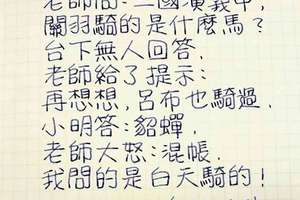 老師問:三國演義中,
關羽騎的是什麼馬?
台下無人回答.
老師給了提示:
再想想,呂布也騎過.
小明答:貂蟬.
老師大怒:混帳.
我問的是白天騎的!